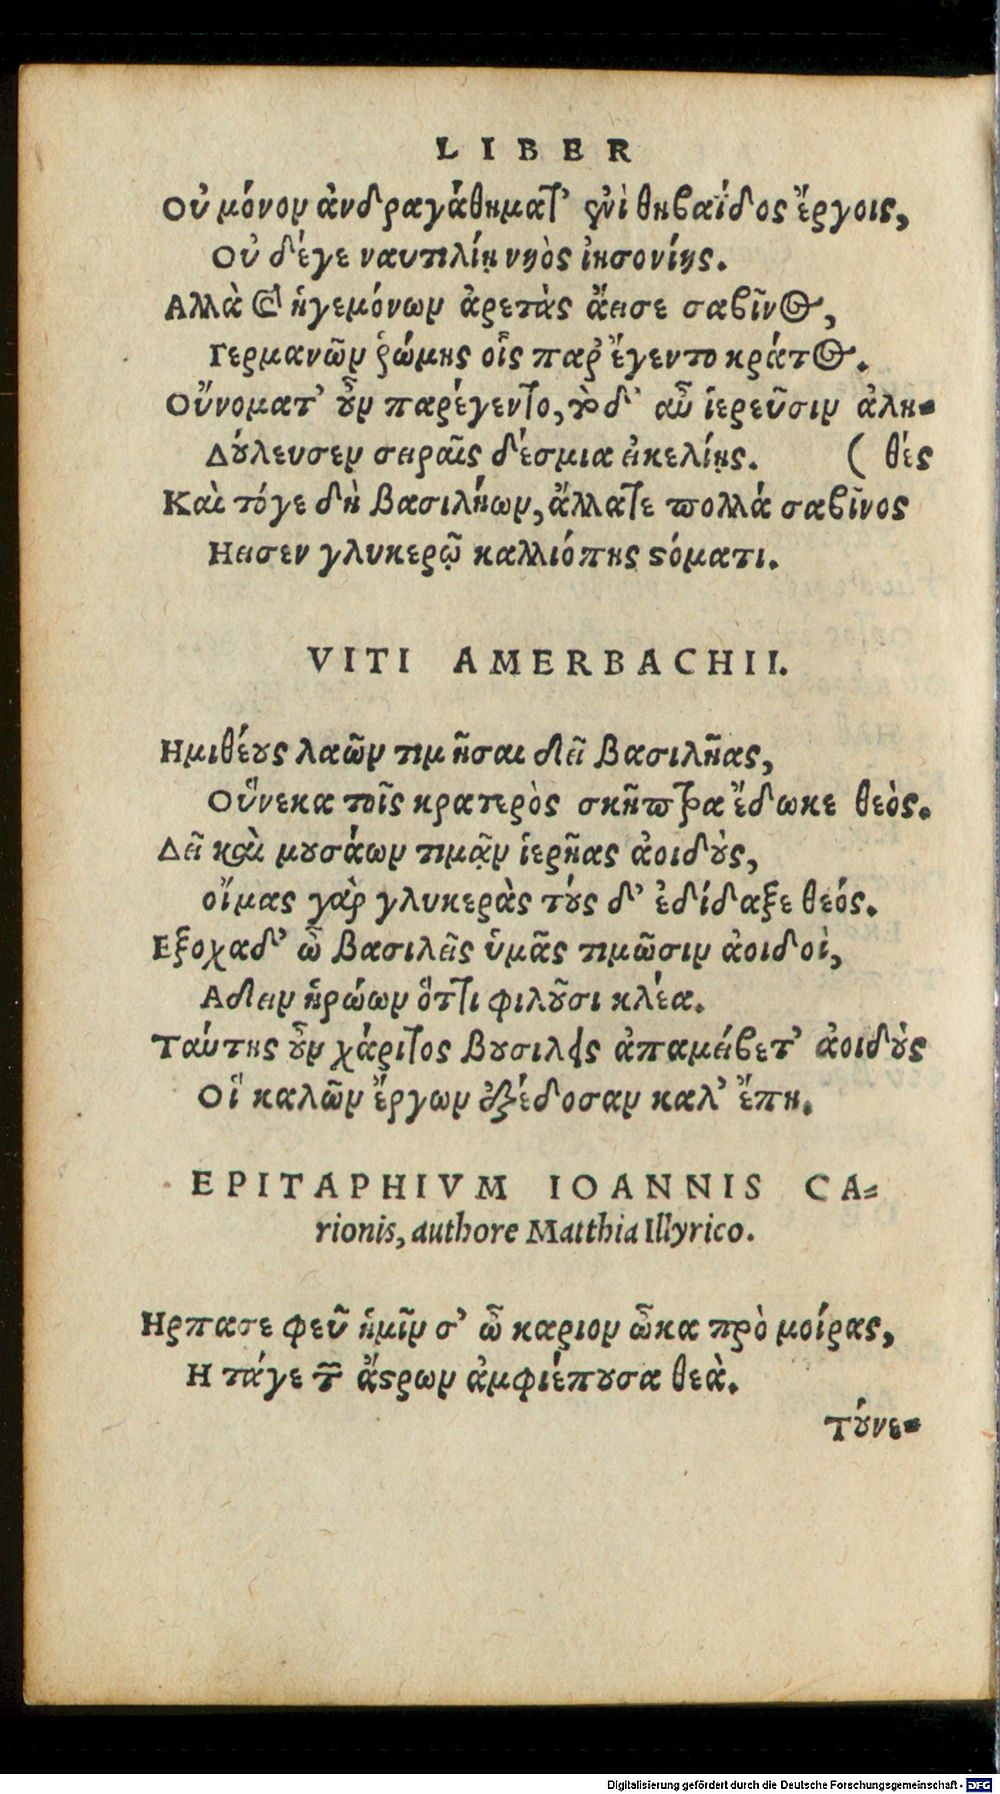 LIBER
Οὐ μόνον ἀνδραγάθηματ' ἐνὶ θηβαΐδος ἔργοις,
Οὐ δέγε ναυτιλίῃ νηὸς ἰησονίης.
Αλλὰ καὶ ἡγεμόνων ἀρετὰς ἄεισε σαβῖνος,
Γερμανῶν ῥώμης οἷς παρ' ἔγεντο κράτος.
Οὔνοματ' οὖν παρέγεντο, τὸ δ' αὖ ἱερεῦσιν ἀλη-
Δούλευσεν σειραῖς δέσμια εἰκελίης. ( θές
Καὶ τόγε δὴ βασιλήων, ἄλλατε πολλά σαβῖνος
Ηεισεν γλυκερῷ καλλιόπης στόματι.
VITI AMERBACHII.
Ημιθέους λαῶν τιμῆσαι δεῖ βασιλῆας,
Οὕνεκα τοῖς κρατερὸς σκῆπτρα ἔδωκε θεὸς.
Δεῖ καὶ μουσάων τιμᾷν ἱερῆας ἀοιδοὺς,
οἴμας γὰρ γλυκερὰς τούς δ' ἐδίδαξε θεός.
Εξοχαδ' ὦ βασιλεῖς ὑμᾶς τιμῶσιν ἀοιδοὶ,
Αδειν ἡρώων ὅττι φιλοῦσι κλέα.
Ταύτης οὖν χάριτος βουσιλεῖς ἀπαμείβετ' ἀοιδοὺς
Οἵ καλῶν ἔργων ἐξέδοσαν καλ' ἔπη.
EPITAPHIVM IOANNIS CA-
rionis, authore Matthia Illyrico.
Ηρπασε φεῦ ἡμῖν σ' ὦ καριον ὦκα πρὸ μοίρας,
Η τάγε τῶν ἄστρων ἀμφιέπουσα θεὰ.
Τούνε-
Digitalisierung gefördert durch die Deutsche Forschungsgemeinschaft - DFG